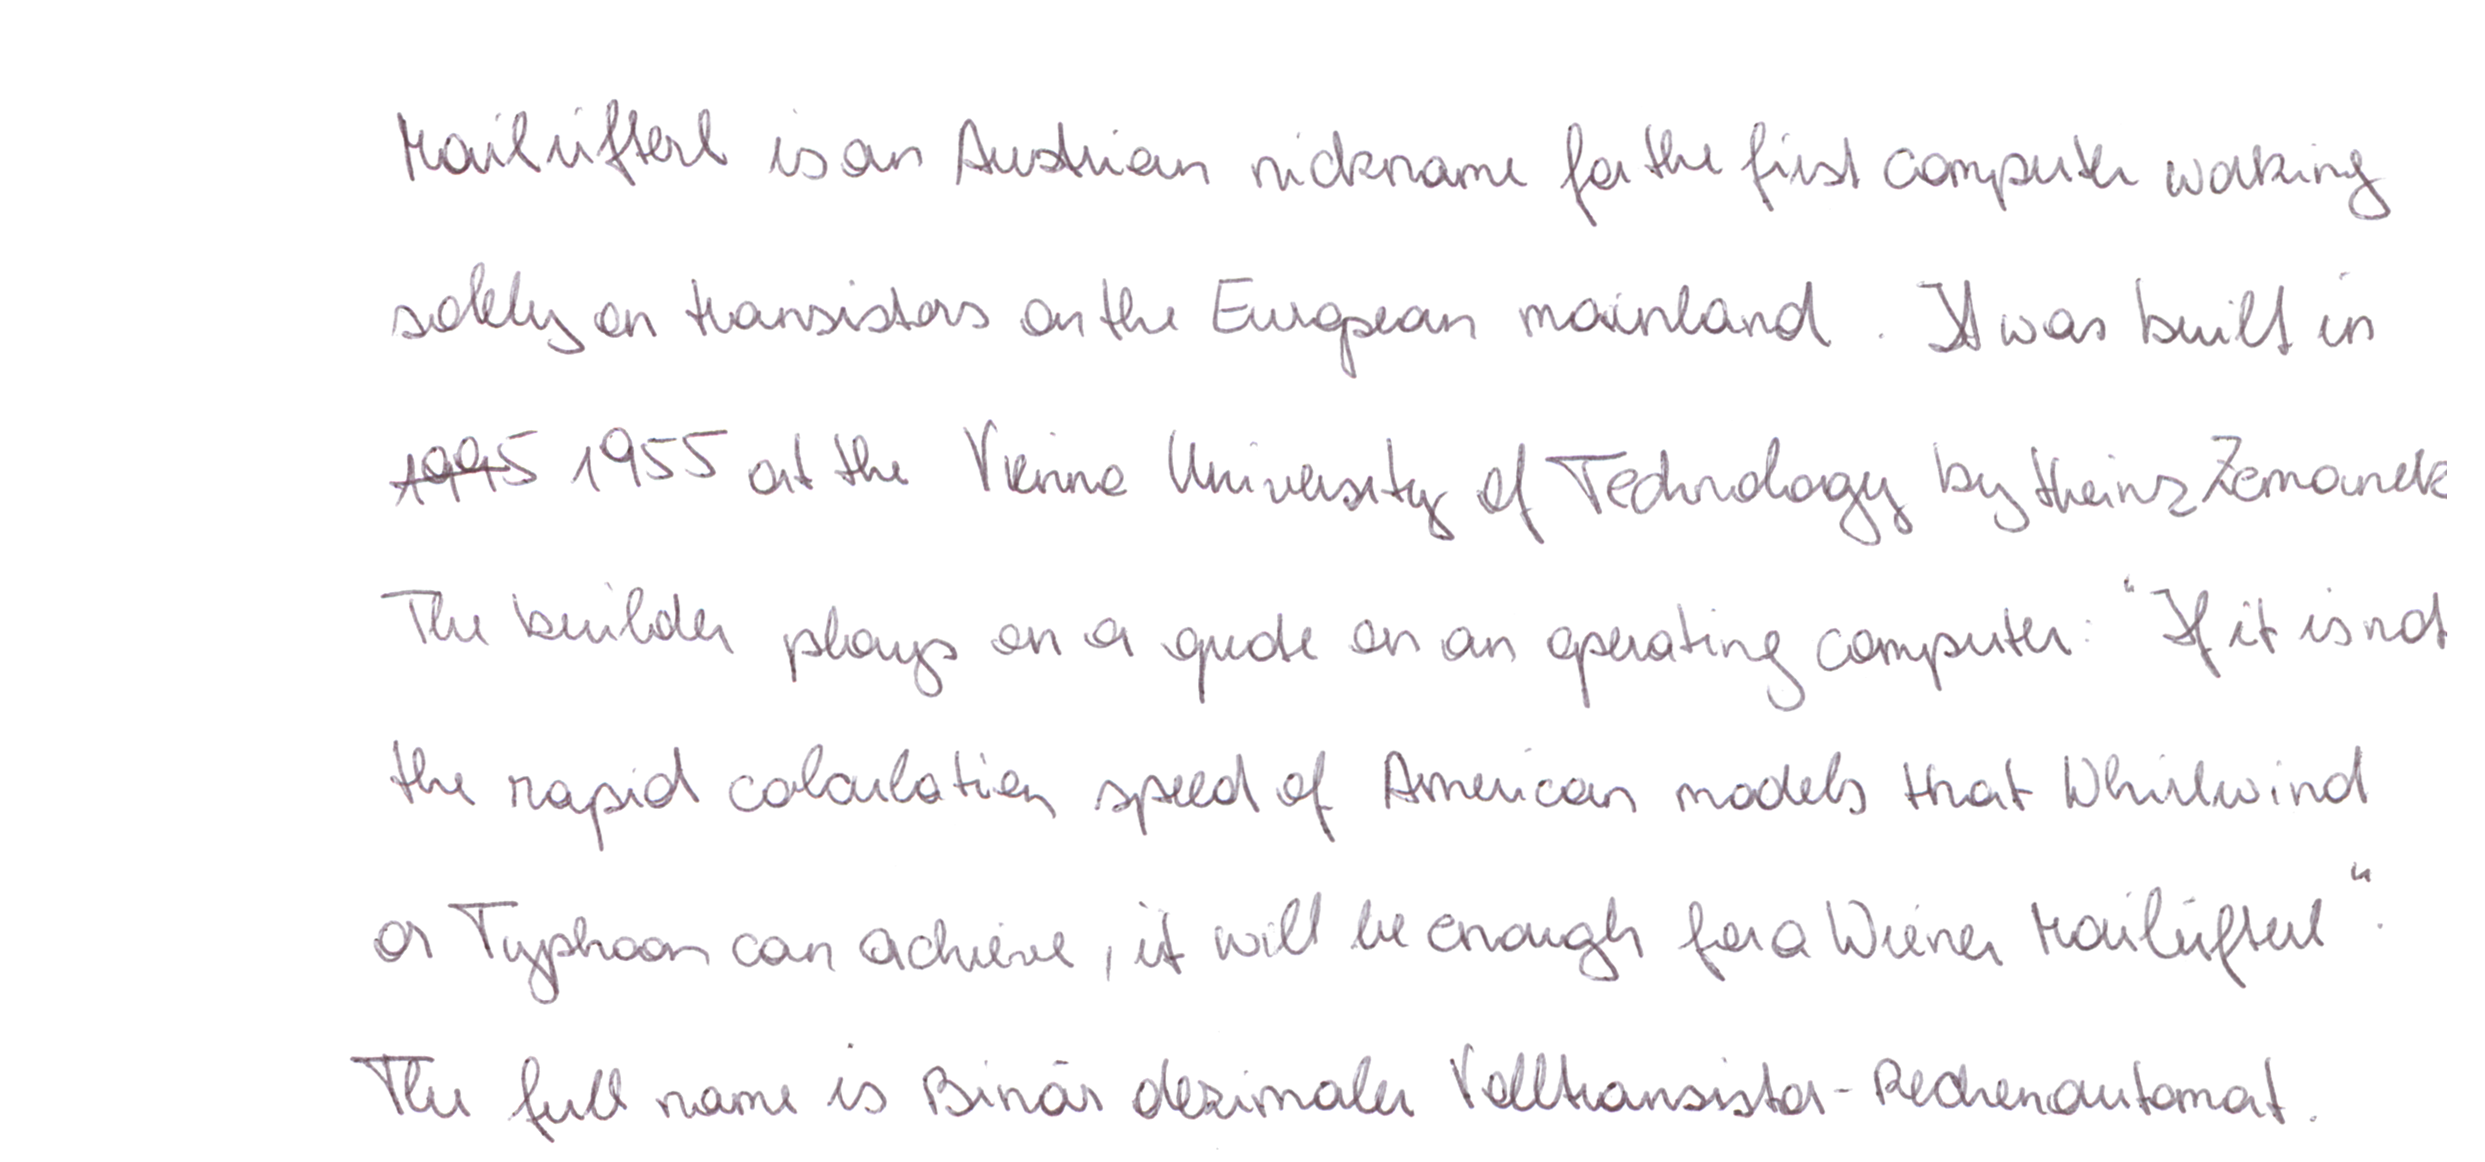 Mailüfterl is an Austrian nickname for the first computer working
solely on transistors on the European mainland. It was built in
1995 1955 at the Vienna University of Technology by Heinz Zemanek
The builder plays on a quote on an operating computer: "If it is not
the rapid calculation speed of American models that Whirlwind
or Typhoon can achieve, it will be enough for a Wiener Mailüfterl".
The full name is Binär dezimaler Volltransistor-Rechenautomat.